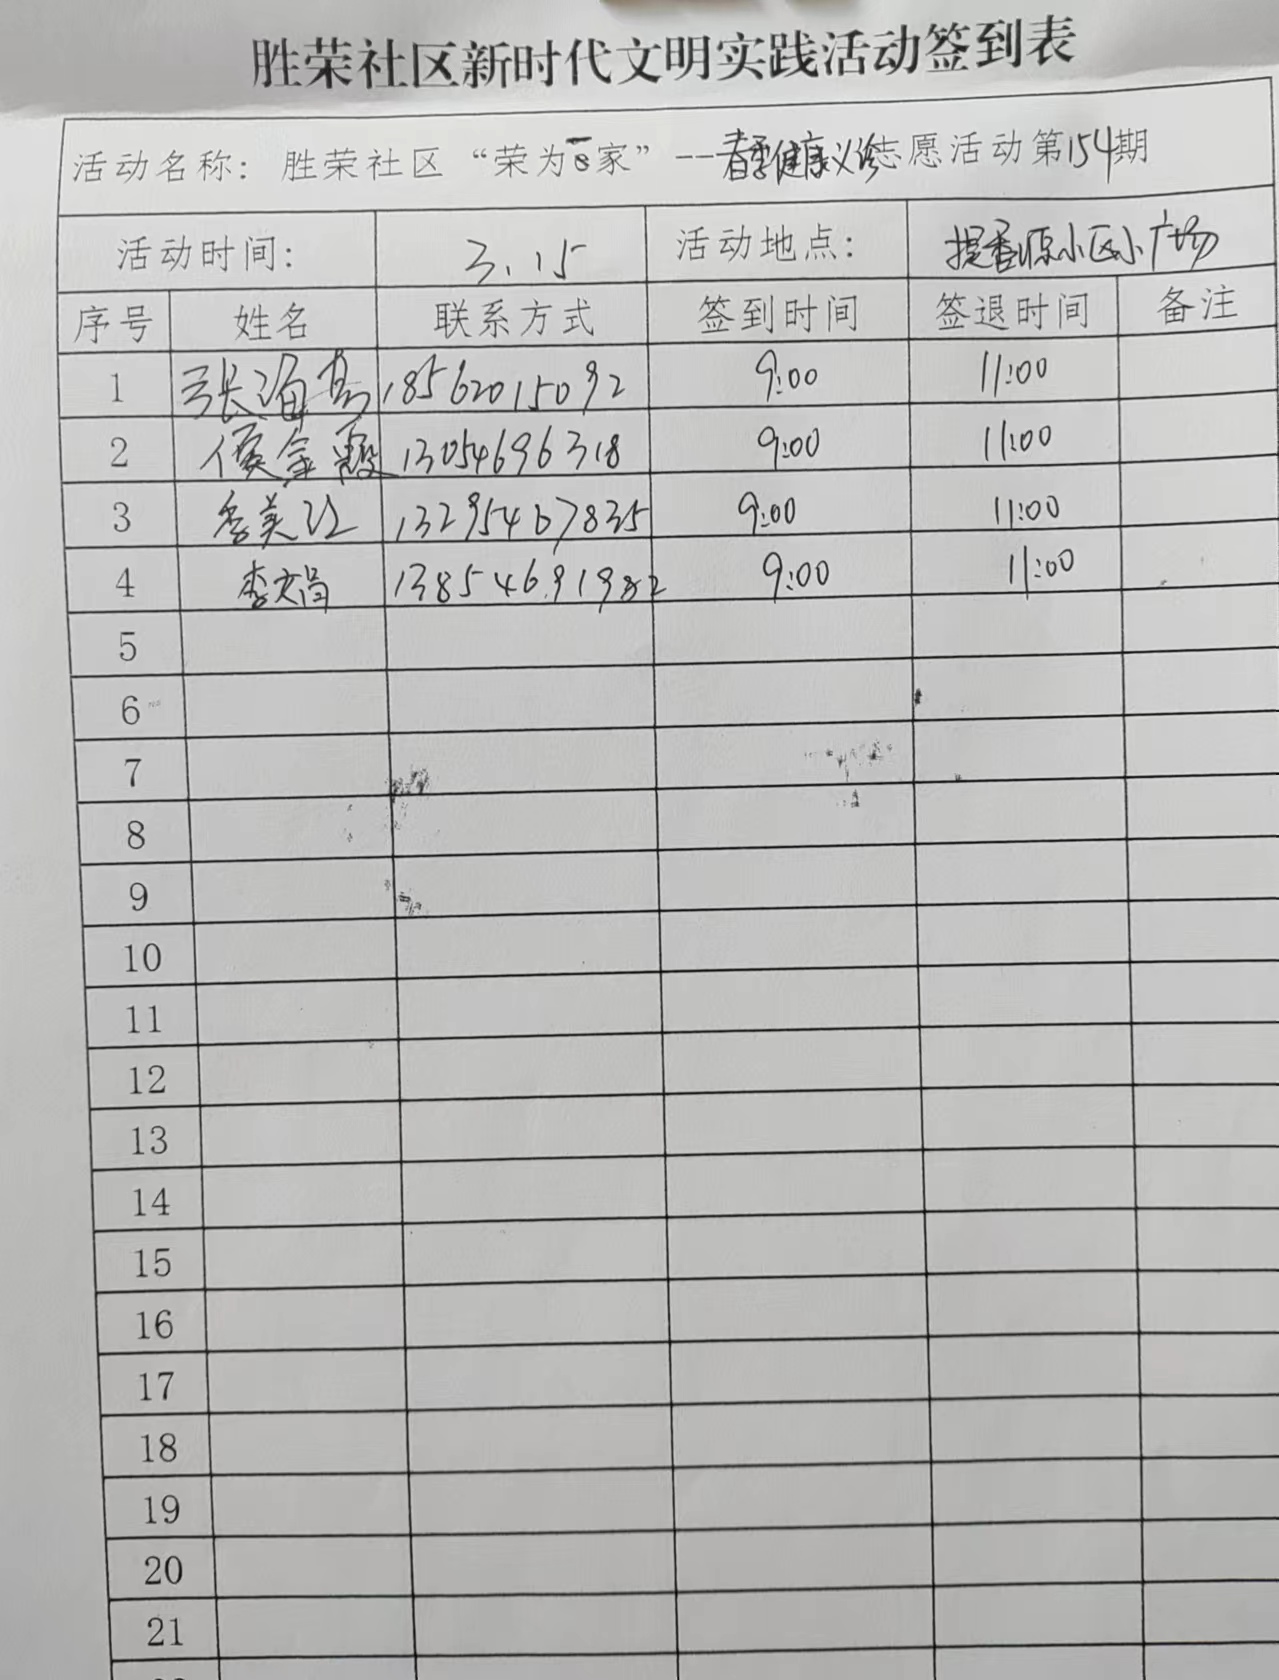 胜荣社区新时代文明实践活动签到表
活动名称：胜荣社区“荣为一家”--春季健康义诊志愿活动第154期
活动时间： 3.15 活动地点： 提香源小区小广场
序号 姓名 联系方式 签到时间 签退时间 备注
1 张海 18562015092 9:00 11:00
2 侯金霞 13054696318 9:00 11:00
3 李美 13295467835 9:00 11:00
4 李文娟 13854691982 9:00 11:00
5
6
7
8
9
10
11
12
13
14
15
16
17
18
19
20
21